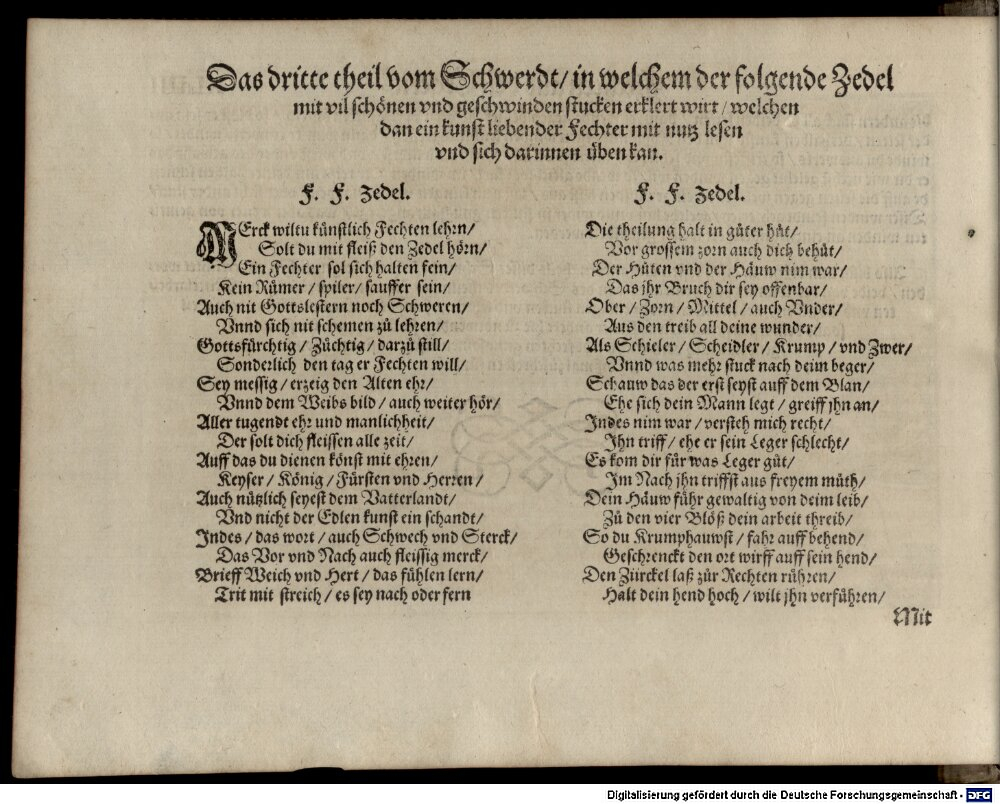 Das dritte theil vom Schwerdt/ in welchem der folgende Zedel
mit vil schönen vnd geschwinden stucken erklert wirt/ welchen
dan ein kunst liebender Fechter mit nutz lesen
vnd sich darinnen üben kan.
F. F. Zedel.
MErck wiltu künstlich Fechten lehrn/
Solt du mit fleiß den Zedel hörn/
Ein Fechter sol sich halten fein/
Kein Rümer/ spiler/ sauffer sein/
Auch nit Gottslestern noch Schweren/
Vnnd sich nit schemen zů lehren/
Gottsfürchtig/ Züchtig/ darzů still/
Sonderlich den tag er Fechten will/
Sey messig/ erzeig den Alten ehr/
Vnnd dem Weibs bild/ auch weiter hör/
Aller tugendt ehr und manlichheit/
Der solt dich fleissen alle zeit/
Auff das du dienen könst mit ehren/
Keyser/ König/ Fürsten vnd Herren/
Auch nützlich seyest dem Vatterlandt/
Vnd nicht der Edlen kunst ein schandt/
Indes/ das wort/ auch Schwech vnd Sterck/
Das Vor vnd Nach auch fleissig merck/
Brieff Weich vnd Hert/ das fühlen lern/
Trit mit streich/ es sey nach oder fern
F. F. Zedel.
Die theilung halt in gůter hůt/
Vor grossem zorn auch dich behůt/
Der Hůten vnd der Häuw nim war/
Das jhr Bruch dir sey offenbar/
Ober/ Zorn/ Mittel/ auch Vnder/
Aus den treib all deine wunder/
Als Schieler/ Scheidler/ Krump/ vnd Zwer/
Vnnd was mehr stuck nach deim beger/
Schauw das der erst seyst auff dem Blan/
Ehe sich dein Mann legt/ greiff jhn an/
Indes nim war/ versteh mich recht/
Ihn triff/ ehe er sein Leger schlecht/
Es kom dir für was Leger gůt/
Im Nach jhn triffst aus freyem můth/
Dein Häuw führ gewaltig von deim leib/
Zů den vier Blöß dein arbeit threib/
So du Krumphauwst/ fahr auff behend/
Geschrenckt den ort wirff auff sein hend/
Den Ziirckel laß zůr Rechten rühren/
Halt dein hend hoch/ wilt jhn verführen/
Mit
Digitalisierung gefördert durch die Deutsche Forschungsgemeinschaft - DFG